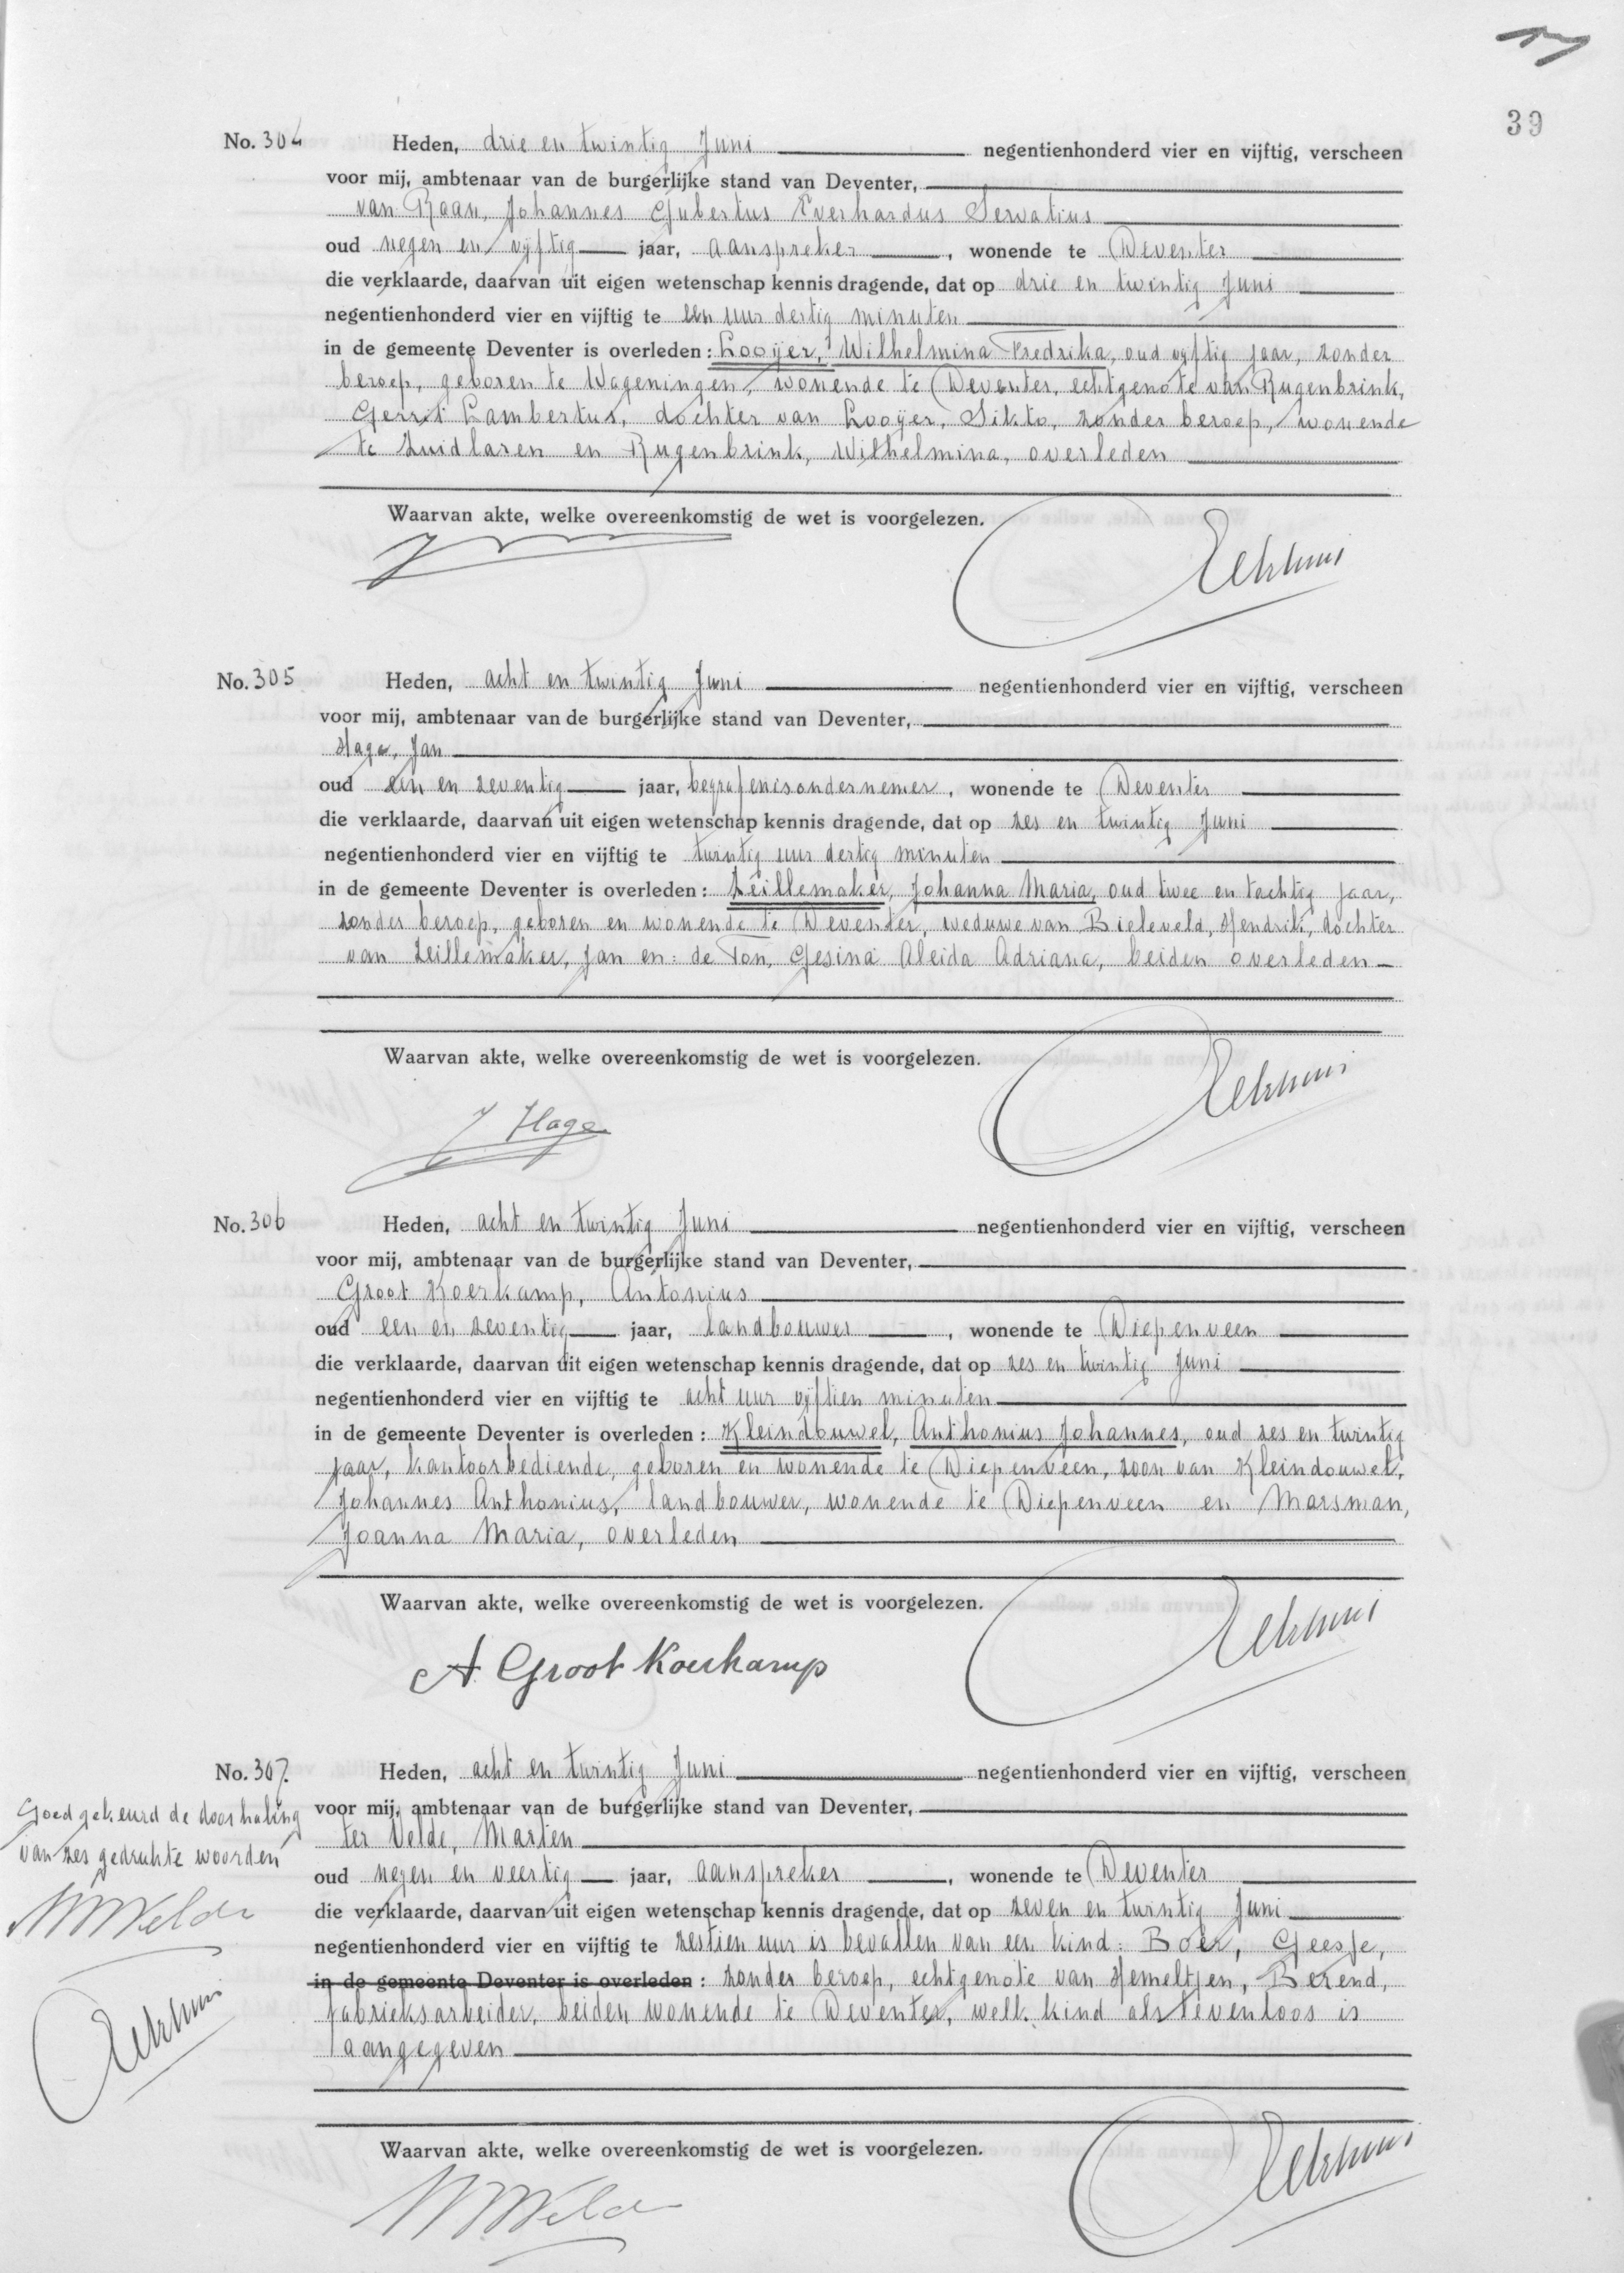 39
No. 304 Heden, drie en twintig Juni negentienhonderd vier en vijftig, verscheen
voor mij, ambtenaar van de burgerlijke stand van Deventer,
van Raan, Johannes Gubertus Everhardus Servatius
oud negen en vijftig jaar, aanspreker, wonende te Deventer
die verklaarde, daarvan uit eigen wetenschap kennis dragende, dat op drie en twintig Juni
negentienhonderd vier en vijftig te een uur dertig minuten
in de gemeente Deventer is overleden: Looijer, Wilhelmina Fredrika, oud vijftig jaar, zonder
beroep, geboren te Wageningen, wonende te Deventer, echtgenote van Rugenbrink,
Gerrit Lambertus, dochter van Looijer, Sikto, zonder beroep, wonende
te Zuidlaren en Rugenbrink, Wilhelmina, overleden
Waarvan akte, welke overeenkomstig de wet is voorgelezen.
No. 305 Heden, acht en twintig Juni negentienhonderd vier en vijftig, verscheen
voor mij, ambtenaar van de burgerlijke stand van Deventer,
Hage, Jan
oud een en zeventig jaar, begrafenisondernemer, wonende te Deventer
die verklaarde, daarvan uit eigen wetenschap kennis dragende, dat op zes en twintig Juni
negentienhonderd vier en vijftig te twintig uur dertig minuten
in de gemeente Deventer is overleden: Zeillemaker, Johanna Maria, oud twee en tachtig jaar,
zonder beroep, geboren en wonende te Deventer, weduwe van Bieleveld, Hendrik, dochter
van Zeillemaker, Jan en: de Ton, Gesina Aleida Adriana, beiden overleden
Waarvan akte, welke overeenkomstig de wet is voorgelezen.
J Hage
No. 306 Heden, acht en twintig Juni negentienhonderd vier en vijftig, verscheen
voor mij, ambtenaar van de burgerlijke stand van Deventer,
Groot Koerkamp, Antonius
oud een en zeventig jaar, landbouwer, wonende te Diepenveen
die verklaarde, daarvan uit eigen wetenschap kennis dragende, dat op zes en twintig Juni
negentienhonderd vier en vijftig te acht uur vijftien minuten
in de gemeente Deventer is overleden: Kleindouwel, Anthonius Johannes, oud zes en twintig
jaar, kantoorbediende, geboren en wonende te Diepenveen, zoon van Kleindouwel,
Johannes Anthonius, landbouwer, wonende te Diepenveen en Marsman,
Joanna Maria, overleden
Waarvan akte, welke overeenkomstig de wet is voorgelezen.
A Groot Koerkamp
No. 307. Heden, acht en twintig Juni negentienhonderd vier en vijftig, verscheen
Goedgekeurd de doorhaling
van zes gedrukte woorden
voor mij, ambtenaar van de burgerlijke stand van Deventer,
ter Velde, Marten
oud negen en veertig jaar, aanspreker, wonende te Deventer
die verklaarde, daarvan uit eigen wetenschap kennis dragende, dat op zeven en twintig Juni
negentienhonderd vier en vijftig te zestien uur is bevallen van een kind: Boer, Geesje,
in de gemeente Deventer is overleden: zonder beroep, echtgenote van Hemeltjen, Berend,
fabrieksarbeider, beiden wonende te Deventer, welk kind als levenloos is
aangegeven
Waarvan akte, welke overeenkomstig de wet is voorgelezen.